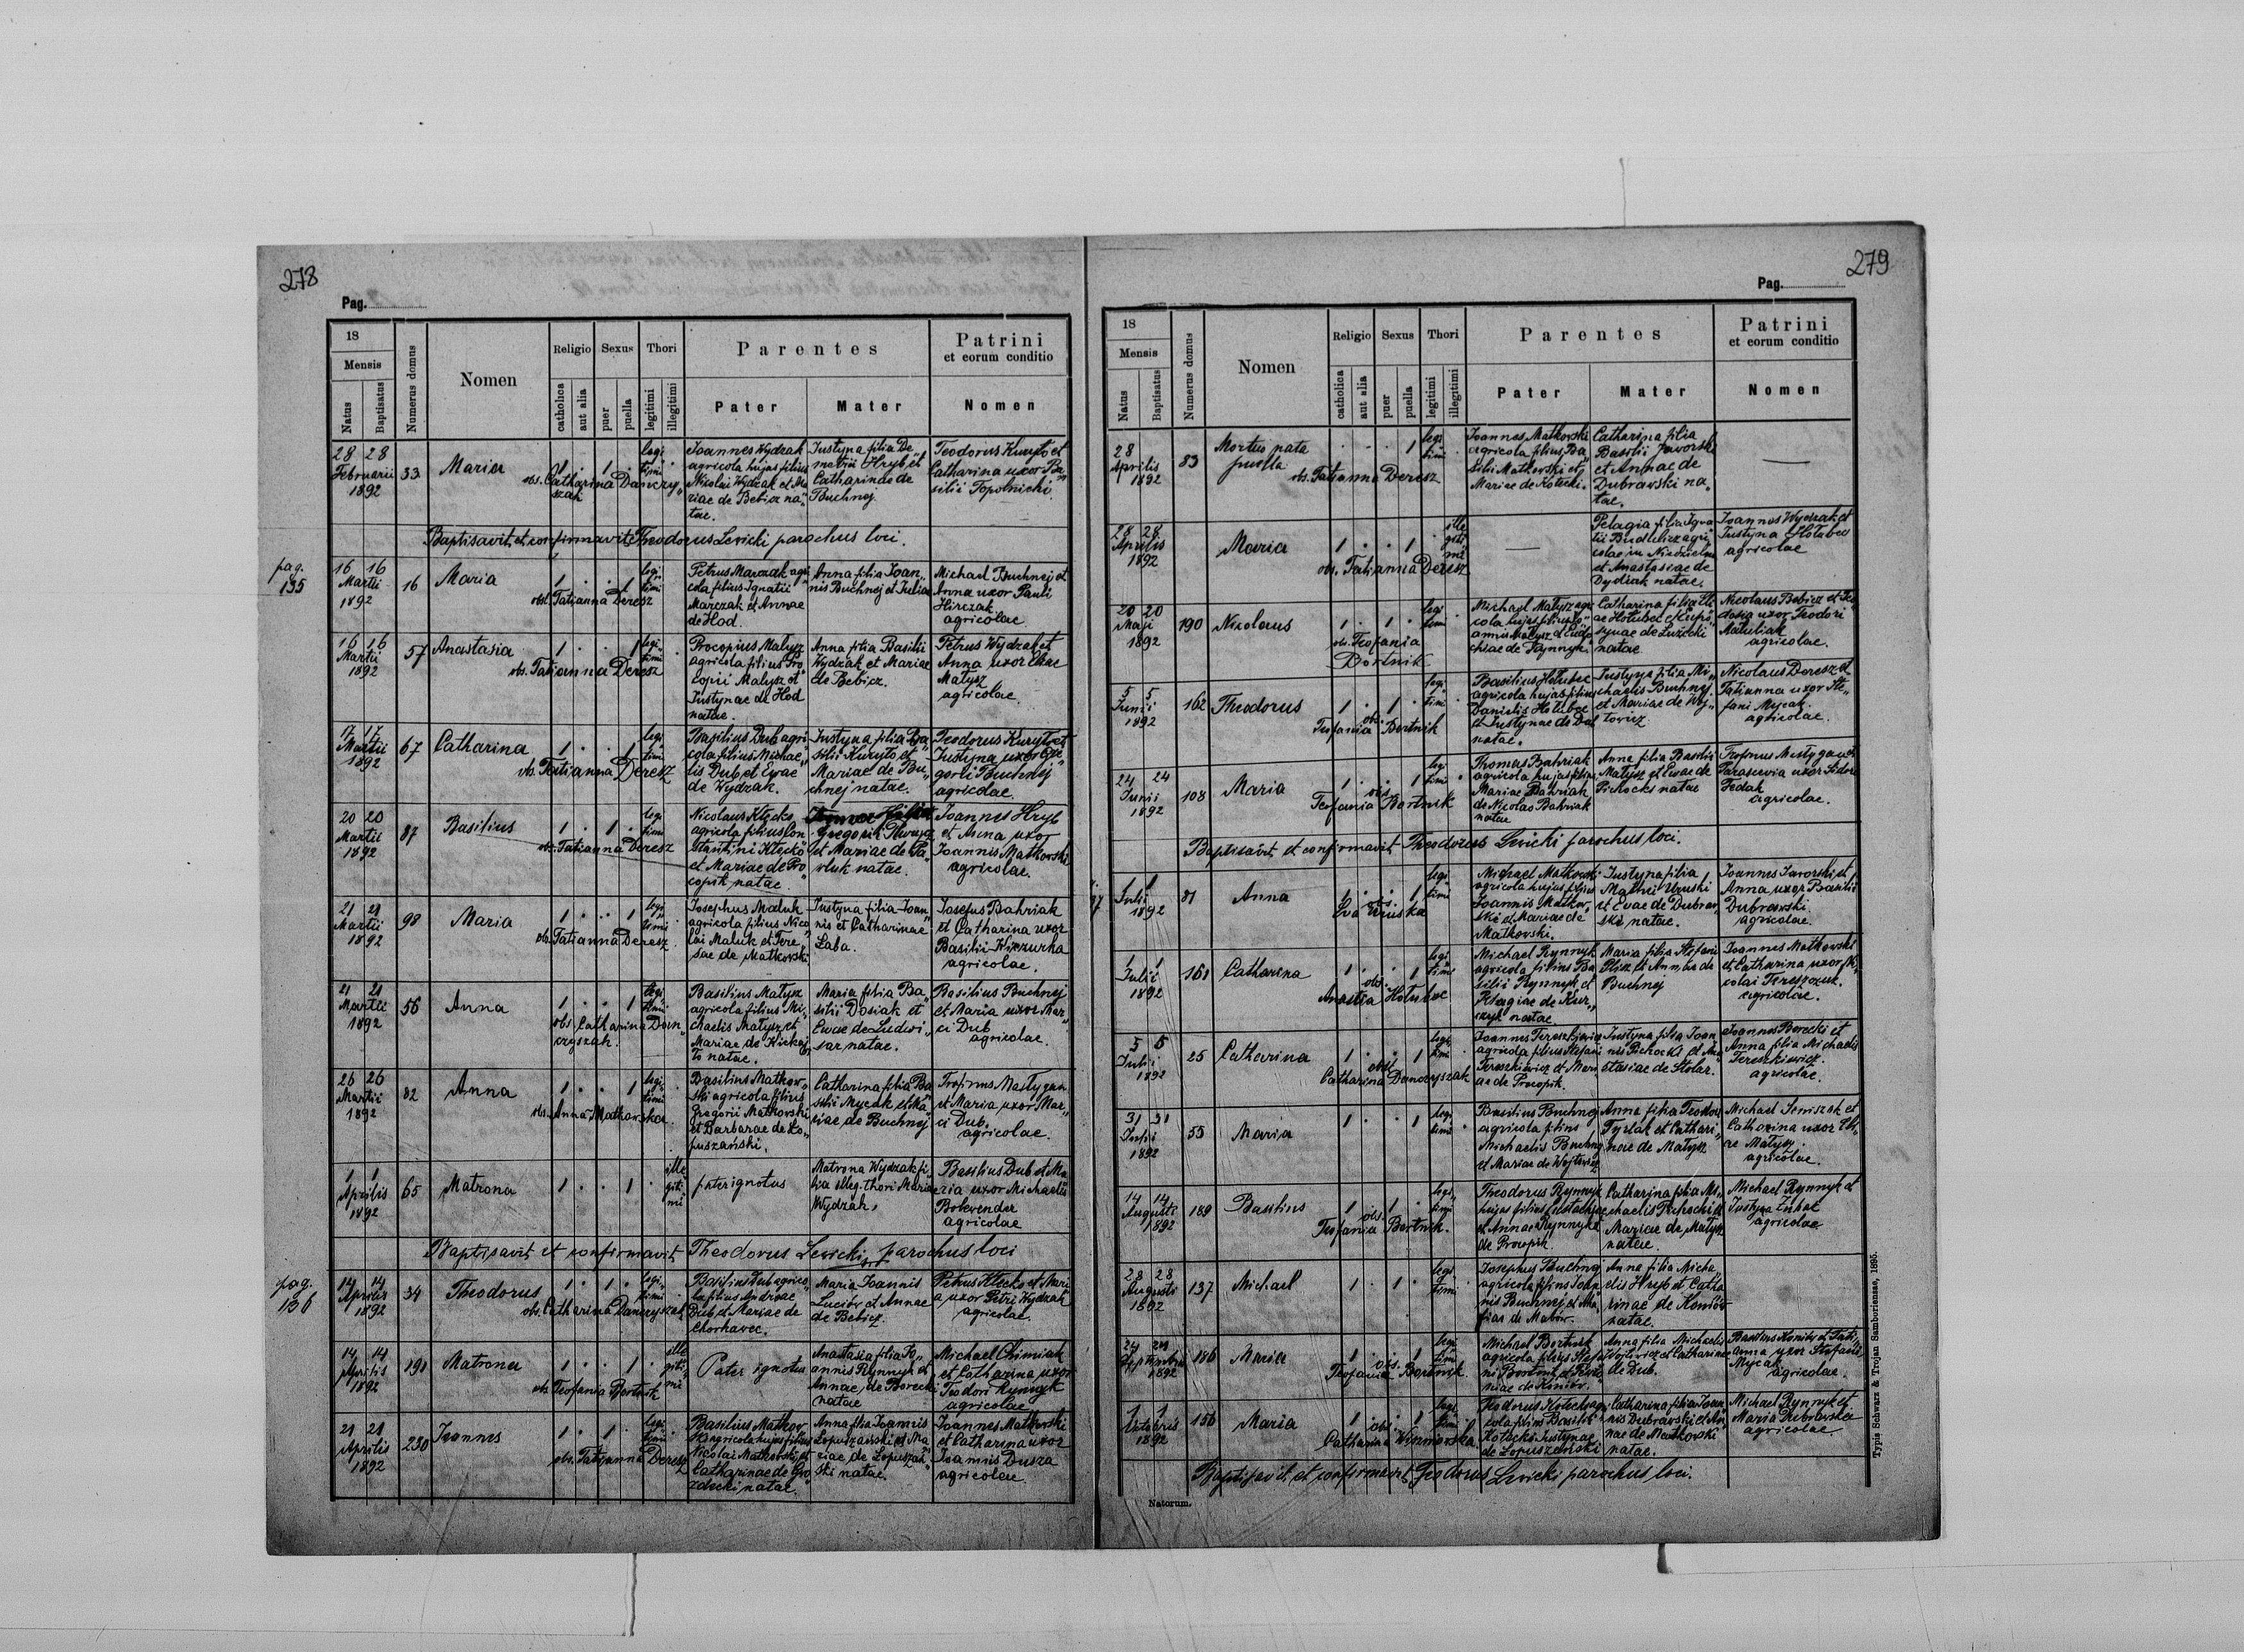 278
Pag.
18
Mensis
Natus
Baptisatus
Numerus domus
Nomen
Religio
catholica
aut alia
Sexus
puer
puella
Thori
legitimi
illegitimi
Parentes
Pater
Mater
Patrini
et eorum conditio
Nomen
28 28
Februarii
1892
33
Maria
1 . 1 .
legi„
timi
obs. Catharina Danczy„
szak
Joannes Wydzak
agricola hujas filius
Nicolai Wydzak et Ma„
riae de Bebicz na„
tae.
Justyna filia De„
metrii Hryb et
Catharinae de
Buchnej
Teodorus Kuryło et
Catharina uxor Ba„
silii Topolnicki
Baptisavit et confirmavit Theodorus Levicki parochus loci.
pag.
135
16 16
Martii
1892
16
Maria
1 . . 1
legi„
timi
obst. Tatianna Deresz
Petrus Marczak agri
cola filius Ignatii
Marczak et Annae
de Hod.
Anna filia Joan„
nis Buchnej et Juliae
Michael Buchnej et
Anna uxor Pauli
Hirczak
agricolae
16 16
Martii
1892
57
Anastasia
1 . . 1
legi„
timi
obs. Tatianna Deresz
Procopius Małysz
agricola filius Pro„
copii Małysz et
Justynae de Hod
natae.
Anna filia Basilii
Wydzak et Mariae
de Bebicz.
Petrus Wydzak et
Anna uxor Eliae
Małysz
agricolae.
17 17
Martii
1892
67
Catharina
1 . . 1
legi„
timi
obs. Tatianna Deresz
Basilius Dub agri„
cola filius Michae„
lis Dub et Evae
de Wydzak.
Justyna filia Ba„
silii Kuryło et
Mariae de Bu„
chnej natae.
Teodorus Kuryło et
Justyna uxor Gre„
gorii Buchnej
agricolae.
20 20
Martii
1892
87
Basilius
1 . 1 .
legi
timi
obs. Tatianna Deresz
Nicolaus Kłecko
agricola filius Con„
stantini Kłecko
et Mariae de Pro„
copik natae.
Gregorii
et Mariae de Pa„
vluk natae.
Joannes Hryb
et Anna uxor
Joannis Matkowski
agricolae.
21 21
Martii
1892
98
Maria
1 . . 1
legi„
timi
obs. Tatianna Deresz
Josephus Maluk
agricola filius Nico„
lai Maluk et Tere„
sae de Matkowski.
Justyna filia Joan„
nis et Catharinae
Łaba.
Josefus Bahriak
et Catharina uxor
Basilii
agricolae.
21 21
Martii
1892
56
Anna
1 . . 1
legi„
timi
obs. Catharina Dan„
czyszak.
Basilius Małysz
agricola filius Mi„
chaelis Małysz et
Mariae de
natae.
Maria filia Ba„
silii Dosiak et
Evae de Ludwi„
sar natae.
Basilius Buchnej
et Maria uxor Mar„
ci Dub
agricolae.
26 26
Martii
1892
82
Anna
1 . . 1
legi„
timi
obs. Anna Matkowska.
Basilius Matkow„
ski agricola filius
Gregorii Matkowski
et Barbarae de Ło„
puszański.
Catharina filia Ba„
silii Mycak et Ma„
riae de Buchnej
Trofimus Mastygan
et Maria uxor Mar„
ci Dub.
agricolae.
1 1
Aprilis
1892
65
Matrona
1 . . 1 .
ille
giti„
mi
pater ignotus
Matrona Wydzak fi„
lia illeg. thori Mariae
Wydzak.
Basilius Dub et Ma„
ria uxor Michaelis
agricolae
Baptisavit et confirmavit Theodorus Levicki parochus loci
pag.
136
14 14
Aprilis
1892
34
Theodorus
1 . 1 .
legi„
timi
obs. Catharina Danczyszak
Basilius Dub agrico„
la filius Andreae
Dub et Mariae de
Chorkavec.
Maria Joannis
Luciów et Annae
de Bebicz.
Petrus Kłecko et Mari
a uxor Petri Wydzak
agricolae.
14 14
Aprilis
1892
191
Matrona
1 . . 1 .
ille
giti„
mi
obs. Teofania Bortnik
Pater ignotus
Anastasia filia Jo„
annis Rynnyk et
Annae de Borecki
natae
Michael Chimiak
et Catharina uxor
Teodori Rynnyk
agricolae
21 21
Aprilis
1892
230
Joannes
1 . 1 .
legi
timi
obs. Tatianna Deresz
Basilius Matkow„
ski agricola hujas filius
Nicolai Matkowski et
Catharinae de Gro„
zdecki natae.
Anna filia Joannis
Łopuszanski et Ma„
riae de Łopuszań„
ski natae.
Joannes Matkowski
et Catharina uxor
Joannis Dusza
agricolae
279
Pag.
18
Mensis
Natus
Baptisatus
Numerus domus
Nomen
Religio
catholica
aut alia
Sexus
puer
puella
Thori
legitimi
illegitimi
Parentes
Pater
Mater
Patrini
et eorum conditio
Nomen
28
Aprilis
1892
83
Mortuo nata
puella
. . . 1
legi
timi
obs. Tatianna Deresz
Joannes Matkowski
agricola filius Ba„
silii Matkowski et
Mariae de Kotecki.
Catharina filia
Basilii Jaworski
et Annae de
Dubrawski na„
tae.
—
28 28
Aprilis
1892
Maria
1 . . 1 .
ille
giti„
mi
obs. Tatianna Deresz
—
Pelagia filia Igna„
tii agri„
colae in
et Anastasiae de
Dydiak natae.
Joannes Wydzak et
Justyna Hołubec
agricolae
20 20
Maji
1892
190
Nicolaus
1 . 1 .
legi
timi
obs. Teofania
Bortnik
Michael Małysz agri
cola hujas filius Jo„
annis Małysz et Eudo
chiae de Rynnyk.
Catharina filia Eli„
ae Hołubec et Eufro„
synae de Łużecki
natae
Nicolaus Bebicz et Teo„
dosia uxor Teodori
Maluliak
agricolae.
5 5
Junii
1892
162
Theodorus
1 . 1 .
legi
timi
obs.
Teofania Bortnik
Basilius Hołubec
agricola hujas filius
Danielis Hołubec
et Justynae de Dol
natae.
Justyna filia Mi„
chaelis Buchnej
et Mariae de Woj„
towicz
Nicolaus Deresz et
Tatianna uxor Ste„
fani Mycak.
agricolae.
24 24
Junii
1892
108
Maria
1 . . 1
legi
timi
obs.
Teofania Bortnik
Thomas Bahriak
agricola hujas filius
Mariae Bahriak
de Nicolao Bahriak
natae
Anna filia Basilii
Małysz et Evae de
Pichocki natae
Trofimus Mastygan et
Parascevia uxor Sidori
Fedak
agricolae.
Baptisavit et confirmavit Theodorus Levicki parochus loci.
1 1
Julii
1892
81
Anna
1 . . 1
legi
timi
obs.
Eva Uruska
Michael Matkowski
agricola hujas filius
Joannis Matkow„
ski et Mariae de
Matkowski.
Justyna filia
Mathei Uruski
et Evae de Dubraw„
ski natae.
Joannes Jaworski et
Anna uxor Basilii
Dubrawski
agricolae.
1 1
Julii
1892
161
Catharina
1 . . 1
legi
timi
obs.
Anastasia Hołubec
Michael Rynnyk
agricola filius Ba
silii Rynnyk et
Pelagiae de Kur„
czyk natae
Maria filia Stefani
Plisz et Annae de
Buchnej
Joannes Matkowski
et Catharina uxor Ni„
colai Fereszczuk.
agricolae.
5 5
Julii
1892
25
Catharina
1 . . 1
legi
timi
obst.
Catharina Danczyszak
Joannes Tereszkiewicz
agricola filius Stefani
Tereszkiewicz et Mari
ae de Procopik.
Justyna filia Joan„
nis Pichocki et Ana„
stasiae de Stolar.
Joannes Borecki et
Anna filia Michaelis
Tereszkiewicz.
agricolae.
31 31
Julii
1892
55
Maria
1 . . 1
legi
timi
Basilius Buchnej
agricola filius
Michaelis Buchnej
et Mariae de Wojtowicz
Anna filia Teodori
Tyrlak et Cathari„
nae de Małysz
Michael Seniszak et
Catharina uxor Eli„
ae Małysz.
agricolae.
14 14
Augusti
1892
189
Basilius
1 . 1 .
legi„
timi
obs.
Teofania Bortnik.
Theodorus Rynnyk
hujas filius Eustachii
et Annae Rynnyk
de Procopik.
Catharina filia Mi„
chaelis Pichocki et
Mariae de Małysz
natae.
Michael Rynnyk et
Justyna
agricolae
28 28
Augusti
1892
137
Michael
1 . 1 .
legi
timi
Josephus Buchnej
agricola filius Joan„
nis Buchnej et Ma„
riae de Maków.
Anna filia Micha„
elis Hryb et Catha„
rinae de Koniów
natae.
24 24
Septembris
1892
186
Maria
1 . . 1
legi
timi
obs.
Teofania Bortnik
Michael Bortnik
agricola filius Stefa„
ni Bortnik et Parto
niae de Koniów.
Anna filia Michaelis
Wojtowicz et Catharinae
de Dub.
Basilius Koniów et Tati„
anna uxor Stefani
Mycak
agricolae.
1 1
Octobris
1892
156
Maria
1 . . 1
legi
timi
obs.
Catharina
Teodorus Kotecki agri„
cola filius Basilii
Kotecki Justynae
de Łopuszanski
Catharina filia Joan„
nis Dubrawski et An„
nae de Matkowski
natae.
Michael Rynnyk et
Maria Dubrawska
agricolae
Baptisavit et confirmavit Teodorus Levicki parochus loci.
Natorum.
Typis Schwarz & Trojan Samboriensae, 1895.